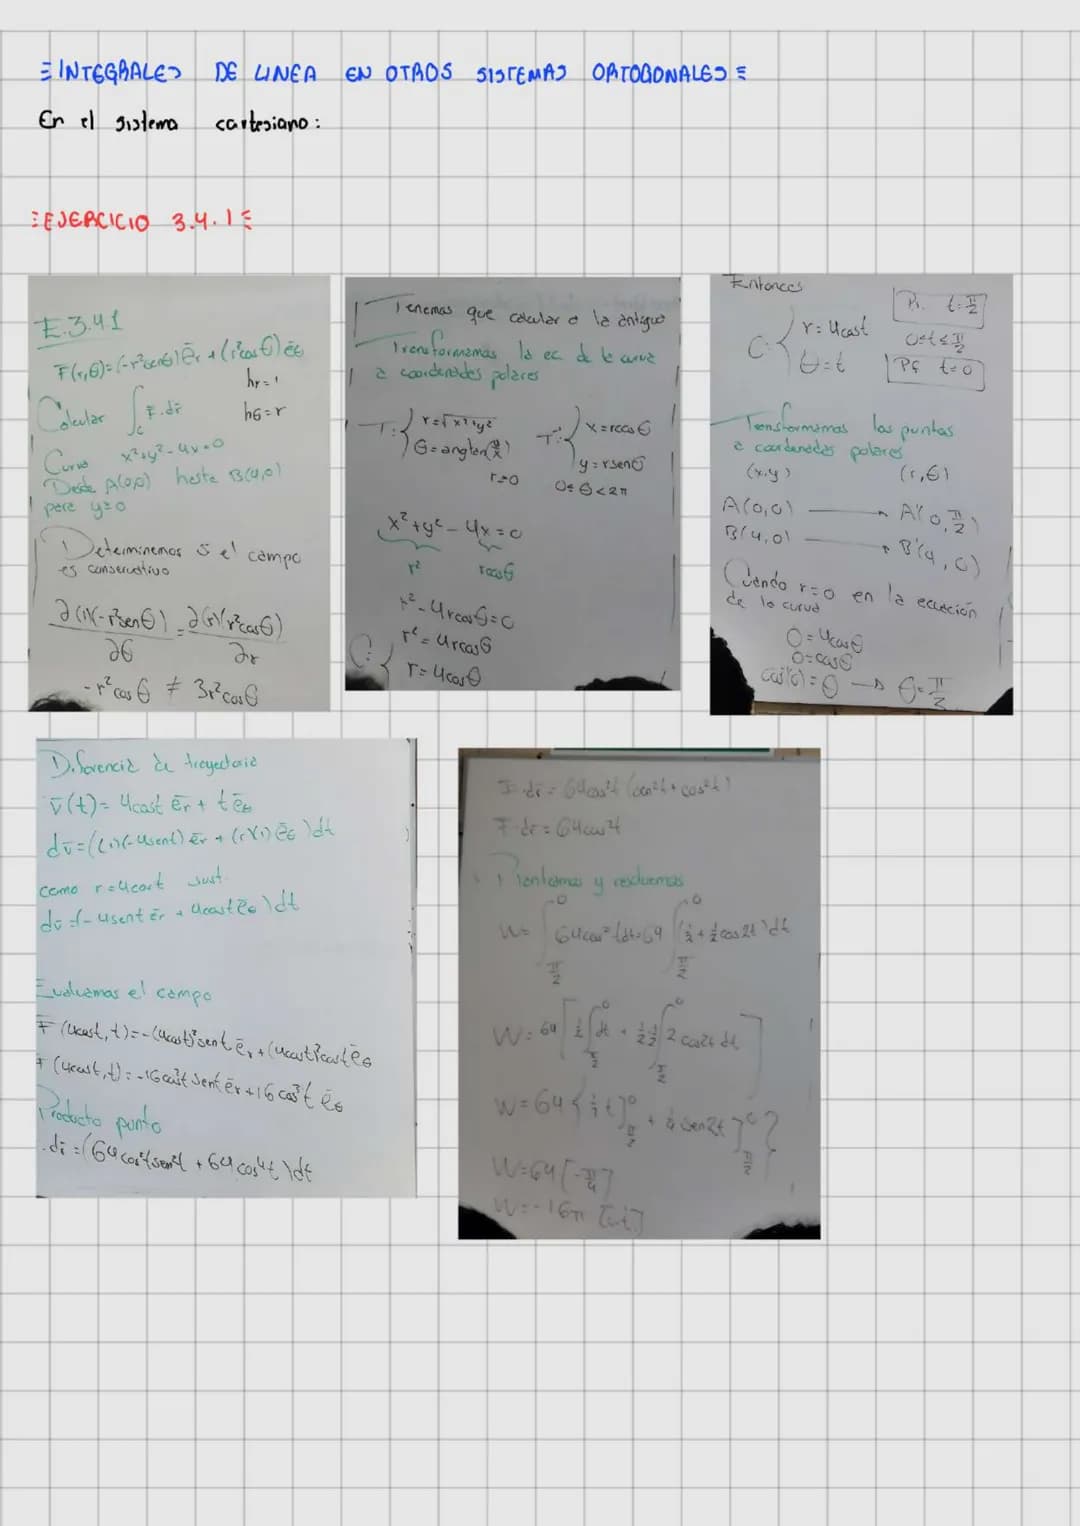 ≡INTEGRALES DE LINEA EN OTROS SISTEMAS ORTOGONALES≡
En el sistema cartesiano:
≡EJERCICIO 3.4.1≡
E.3.4.1
F̄(r,θ)=(-r²senθ)ēr+(r²cosθ)ēθ
hr=1
Calcular ∫c F̄·dr̄
hθ=r
Curva x²+y²-4x=0
Desde A(0,0) hasta B(4,0)
para y≥0
Determinemos si el campo
es conservativo
∂(1)(-r²senθ)/∂θ = ∂(r)(r²cosθ)/∂r
-r²cosθ ≠ 3r²cosθ
Tenemos que calcular a la antigua
Transformamos la ec de la curva
a coordenadas polares
T:{ r=√x²+y²
θ=angtan(y/x)
r≥0
T⁻¹:{ x=rcosθ
y=rsenθ
0≤θ<2π
x²+y²-4x=0
r² rcosθ
r²-4rcosθ=0
r²=4rcosθ
C:{ r=4cosθ
Entonces
C:{ r=4cost
θ=t
Pi. t=π/2
0≤t≤π/2
Pf t=0
Transformamos los puntos
a coordenadas polares
(x,y) (r,θ)
A(0,0) → A'(0,π/2)
B(4,0) → B'(4,0)
Cuando r=0 en la ecuación
de la curva
0=4cosθ
0=cosθ
cos⁻¹(0)=θ → θ=π/2
Diferencia de trayectoria
v̄(t)=4cost ēr+tēθ
dv̄=((1)(-4sent)ēr+(r)(1)ēθ)dt
como r=4cost sust.
dv̄=(-4sent ēr+4costēθ)dt
Evaluamos el campo
F̄(4cost,t)=-(4cost)²sent ēr+(4cost)²costēθ
F̄(4cost,t)=-16cos²t sent ēr+16cos³t ēθ
Producto punto
·dr̄=(64cos²tsen²t+64cos⁴t)dt
F̄·dr̄=64cos²t(sen²t+cos²t)
F̄·dr̄=64cos²t
Planteamos y resolvemos
W=∫π/2⁰ 64cos²tdt=64∫π/2⁰(1/2+1/2cos2t)dt
W=64[1/2∫π/2⁰dt+1/2·1/2∫π/2⁰2cos2tdt]
W=64{1/2t]π/2⁰+1/4sen2t]π/2⁰}
W=64[-π/4]
W=-16π [u.t.]